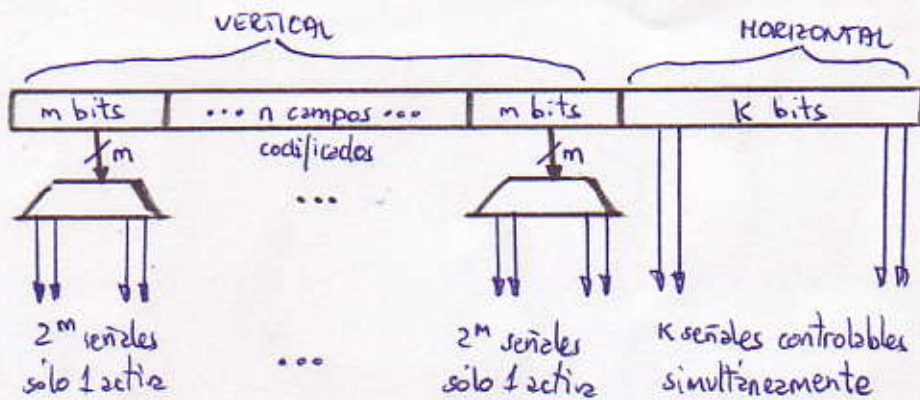 VERTICAL
HORIZONTAL
m bits
... n campos ...
m bits
K bits
codificados
m
m
...
2^m señales
sólo 1 activa
...
2^m señales
sólo 1 activa
K señales controlables
simultáneamente